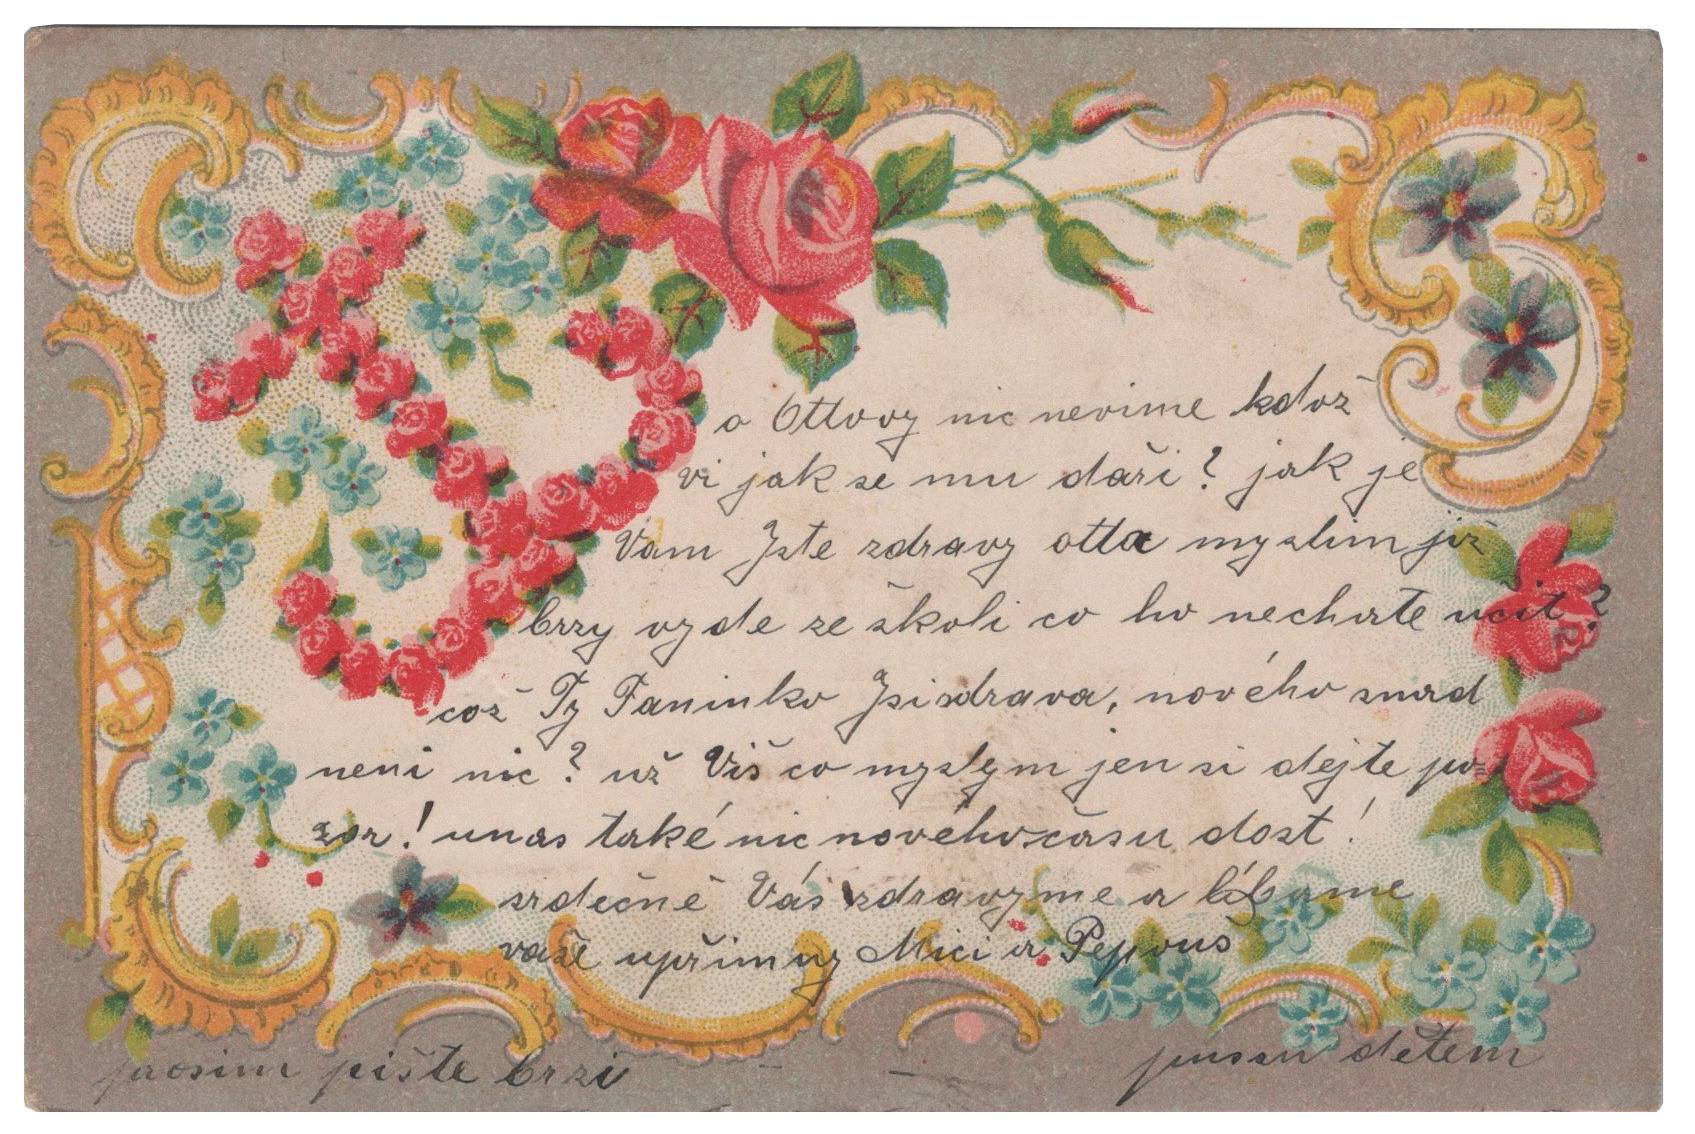 o Ottovy nic nevime kdož
vi jak se mu daři? jak je
Vam Jste zdravy otta myslim již
brzy vyde ze školi co ho nechate učit?
což Ty Faninko Jsi zdrava, nového snad
neni nic? už Viš co myslym jen si dějte po=
zor! unas také nic nového času dost!
srdečně Vás zdravyme a líbame
vaše upřimny Mici a Pepouš
prosim pište brzi
pusu dětem